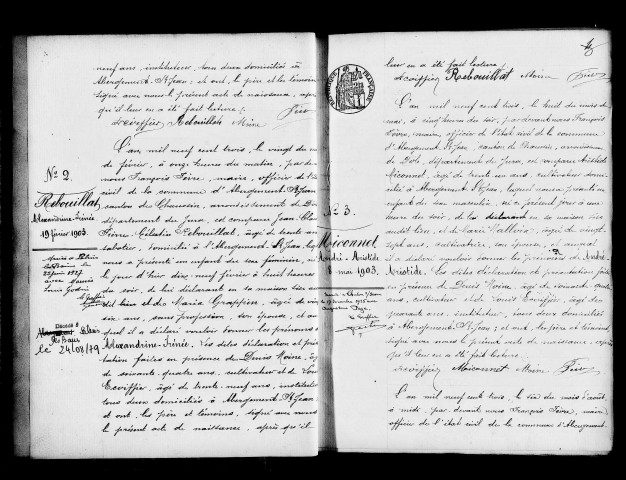 neuf ans, instituteur, tous deux domiciliés à
Abergement-St-Jean; et ont, le père et les témoins
signé avec nous le présent acte de naissance, après
qu'il leur en a été fait lecture.
Ecoiffier Rebouillat Moine Fèvre
N° 2.
Rebouillat
Alexandrine-Irénée
19 février 1903.
L'an mil neuf cent trois, le vingt du mois
de février, à onze heures du matin, par de-
nous François Fèvre, maire, officier de l'état
civil de la commune d'Abergement-St-Jean
canton de Chaussin, arrondissement de Dole
département du Jura, est comparu Jean Claude
Rebouillat, âgé de trente ans
sabotier, domicilié à l'Abergement-St-Jean, lequel
nous a présenté un enfant du sexe féminin, né
le jour d'hier dix neuf février à huit heures
du soir, de lui déclarant en sa maison sise au
dit lieu et de Maria Graffion, âgée de vingt
six ans, sans profession, son épouse, et au-
quel il a déclaré vouloir donner les prénoms de
Alexandrine-Irénée. Les dites déclaration et présen-
tation faites en présence de Denis Moine, âgé
de soixante quatre ans, cultivateur et de Louis
Ecoiffier, âgé de trente-neuf ans, instituteur
tous deux domiciliés à Abergement-St-Jean
et ont, les père et témoins, signé avec nous
le présent acte de naissance, après qu'il
Décédée à
le 24/08/79
leur en a été fait lecture.
Ecoiffier Rebouillat Moine Fèvre
REPUBLIQUE FRANÇAISE
N° 3.
Miconnet
André-Aristide
8 mai 1903.
L'an mil neuf cent trois, le huit du mois de
mai, à cinq heures du soir, par devant nous François
Fèvre, maire, officier de l'état civil de la commune
d'Abergement-St-Jean, canton de Chaussin, arrondissement
de Dole, département du Jura, est comparu Aristide
Miconnet, âgé de trente un ans, cultivateur domici-
lié à Abergement-St-Jean, lequel nous a présenté un
enfant du sexe masculin, né à présent jour à une
heure du soir, de lui déclarant en sa maison sise
audit lieu, et de Marie Valleria, âgée de vingt-
sept ans, cultivatrice, son épouse, et auquel
il a déclaré vouloir donner les prénoms de André-
Aristide. Les dites déclaration et présentation faites
en présence de Denis Moine, âgé de soixante quatre
ans, cultivateur et de Louis Ecoiffier, âgé de
trente neuf ans, instituteur, tous deux domiciliés
à Abergement-St-Jean; et ont, les père et témoins,
signé avec nous le présent acte de naissance, après
qu'il leur en a été fait lecture.
Ecoiffier Miconnet Moine Fèvre
L'an mil neuf cent trois, le six du mois d'août,
à midi, par devant nous François Fèvre, maire
officier de l'état civil de la commune d'Abergement-